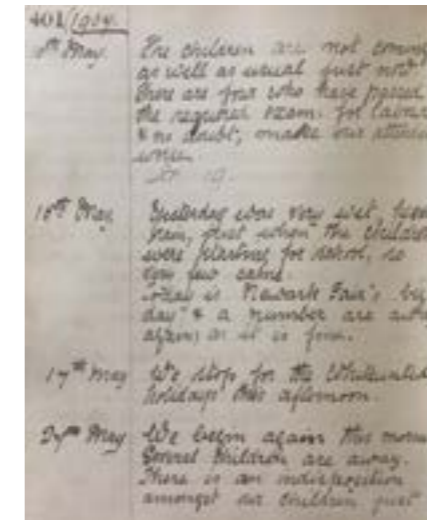 401/1904.
May. The children are not coming
as well as usual just now.
There are four who have passed
the required exam. for labour
& no doubt, make our
worse.
May. Yesterday was very wet,
rain, just when the children
were starting for school, so
very few came.
Today is Newark Fair's big
day & a number are away
again, as it is fine.
17th May We stop for the Whitsuntide
holidays this afternoon.
May We begin again this morning
Several children are away.
There is an indisposition
amongst our children just